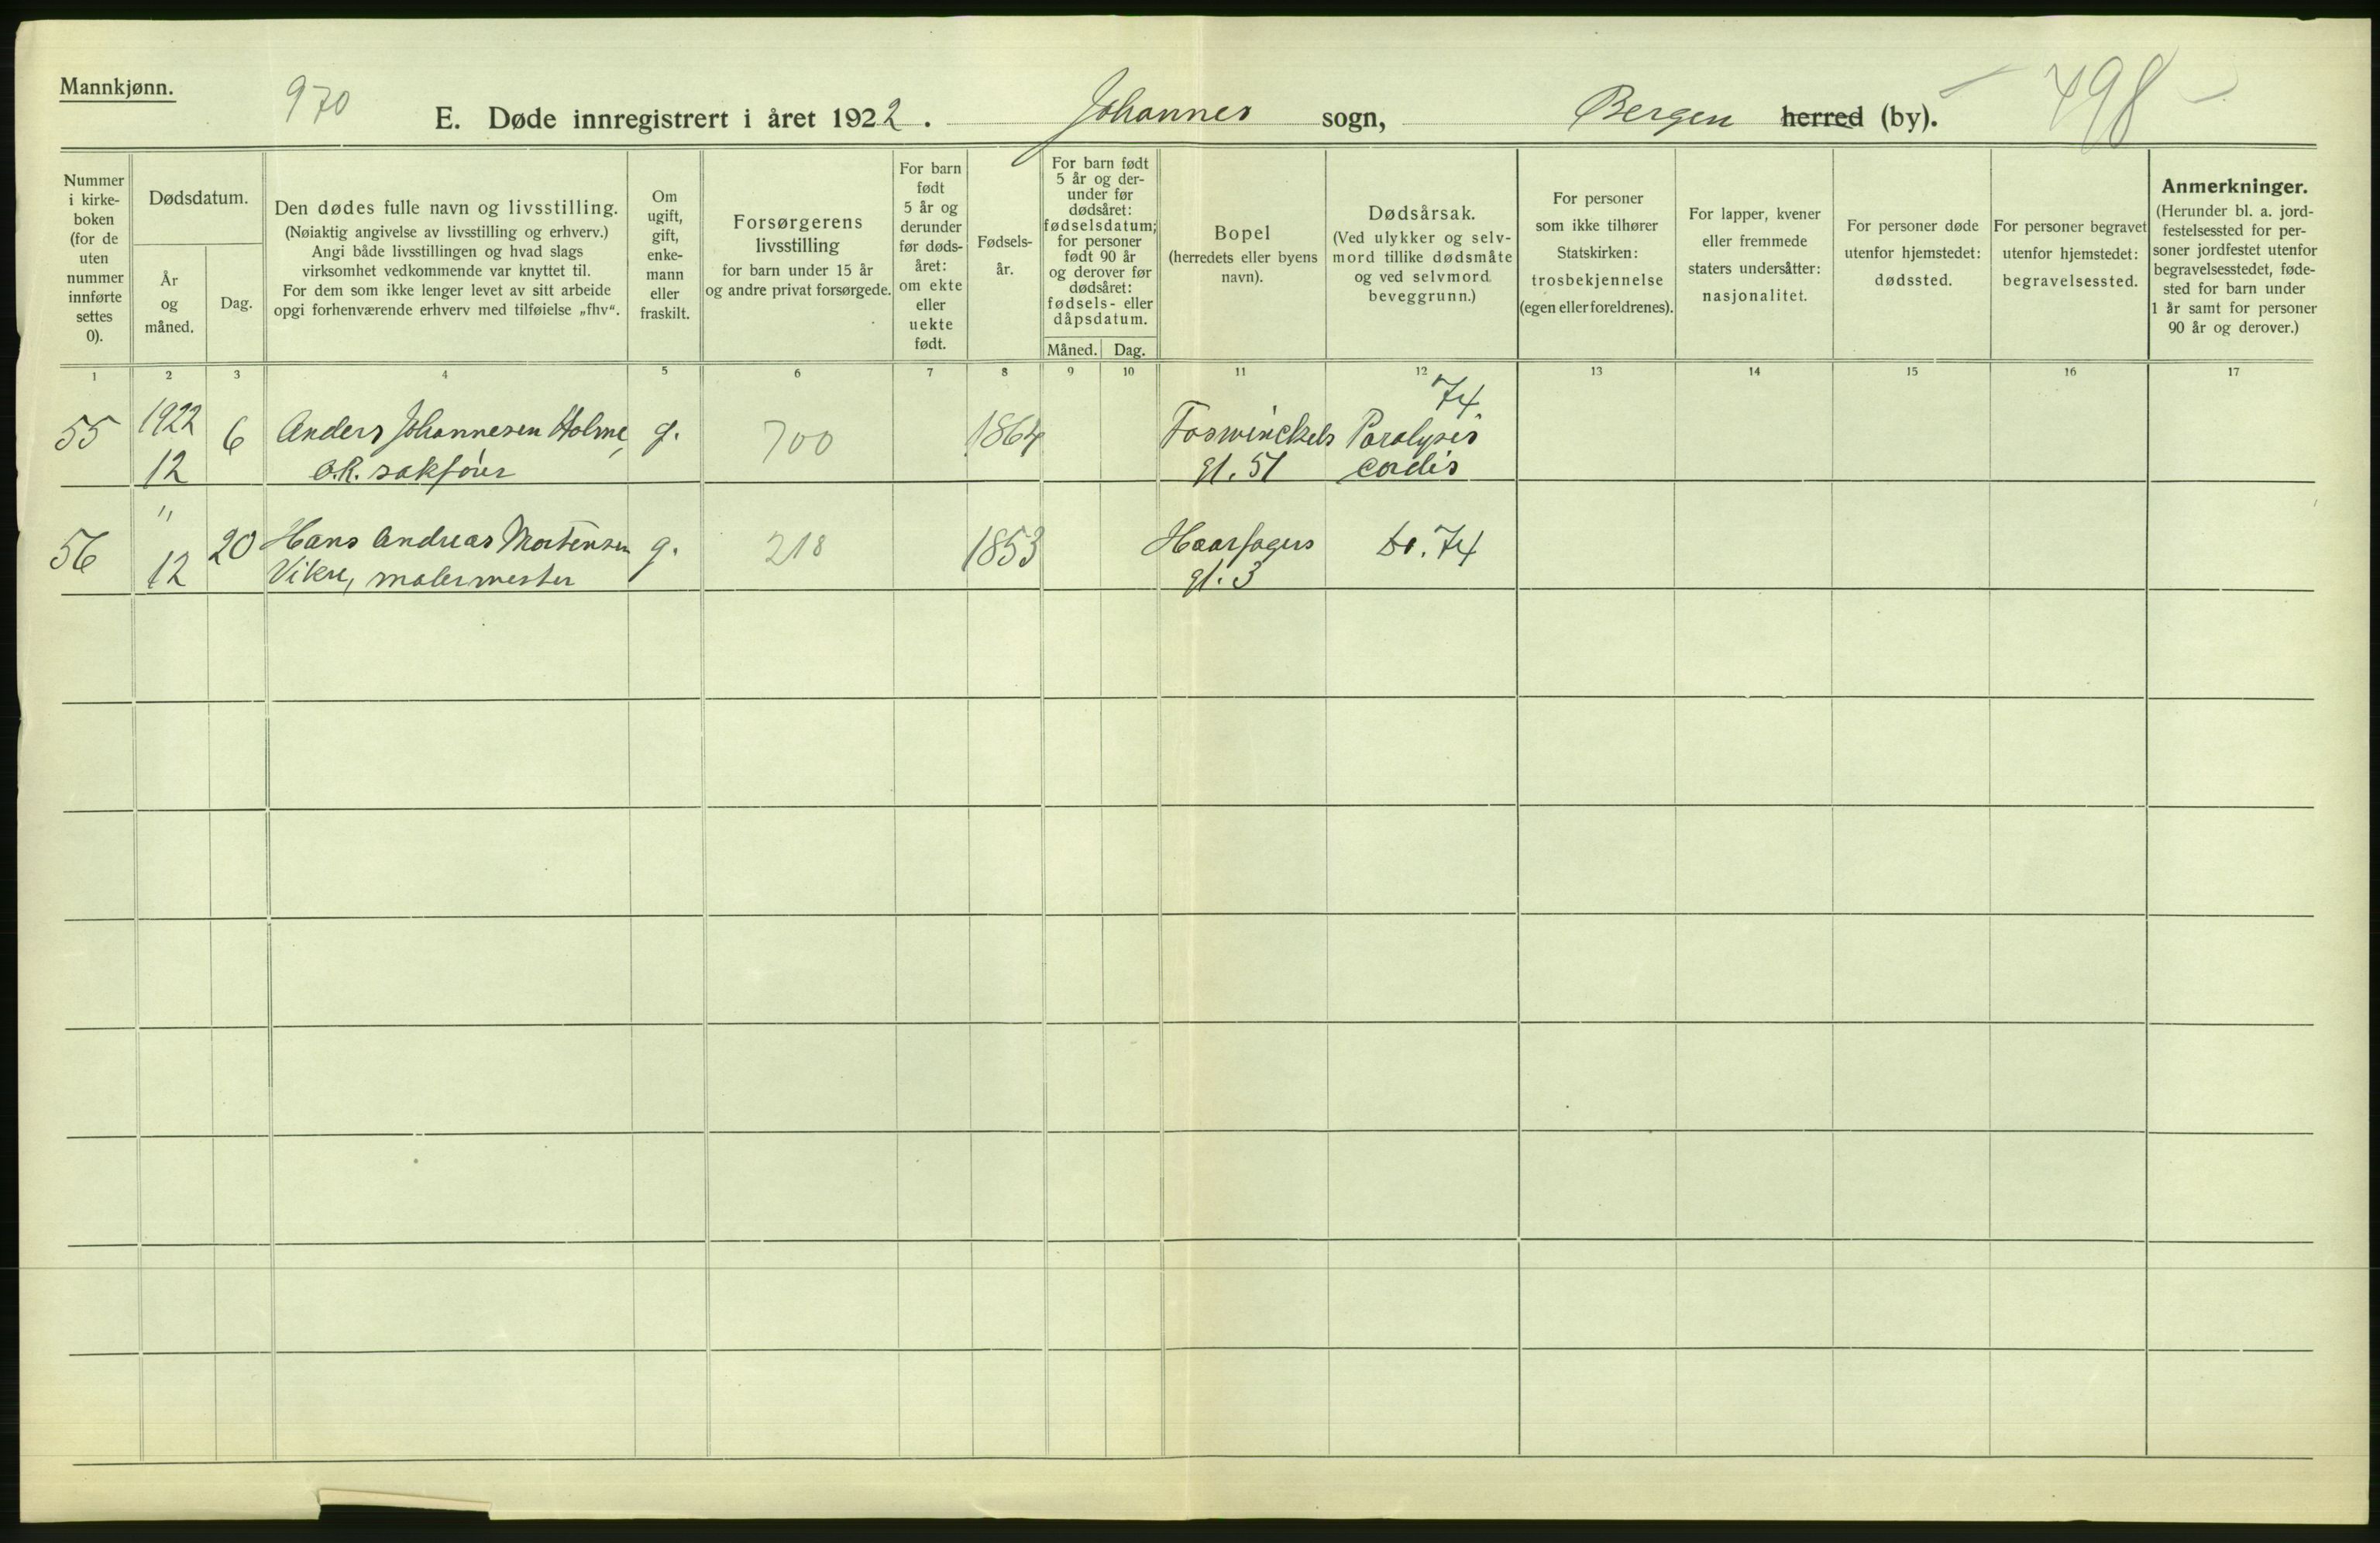 Mannkjønn.
970
E. Døde innregistrert i året 1922. Johannes sogn, Bergen herred (by). 498
Nummer i kirke- boken (for de uten nummer innførte settes 0).
Dødsdatum.
År og måned.
Dag.
Den dødes fulle navn og livsstilling.
(Nøiaktig angivelse av livsstilling og erhverv.)
Angi både livsstillingen og hvad slags
virksomhet vedkommende var knyttet til.
For dem som ikke lenger levet av sitt arbeide
opgi forhenværende erhverv med tilføielse „fhv“.
Om ugift, gift, enke- mann eller fraskilt.
Forsørgerens
livsstilling
for barn under 15 år
og andre privat forsørgede.
For barn født 5 år og derunder før døds- året: om ekte eller uekte født.
Fødsels- år.
For barn født 5 år og der- under før dødsåret: fødselsdatum; for personer født 90 år og derover før dødsåret: fødsels- eller dåpsdatum.
Måned. Dag.
Bopel
(herredets eller byens
navn).
Dødsårsak.
(Ved ulykker og selv-
mord tillike dødsmåte
og ved selvmord
beveggrunn.)
For personer
som ikke tilhører
Statskirken:
trosbekjennelse
(egen eller foreldrenes).
For lapper, kvener
eller fremmede
staters undersåtter:
nasjonalitet.
For personer døde
utenfor hjemstedet:
dødssted.
For personer begravet
utenfor hjemstedet:
begravelsessted.
Anmerkninger.
(Herunder bl. a. jord-
festelsessted for per-
soner jordfestet utenfor
begravelsesstedet, føde-
sted for barn under
1 år samt for personer
90 år og derover.)
1 2 3 4 5 6 7 8 9 10 11 12 13 14 15 16 17
74.
55 1922 6 Anders Johannesen Holme, g. 700 1864 Foswinckels Paralysis
12 O.R. sakfører gt. 51 cordis
56 " 20 Hans Andreas Mortensen g. 218 1853 Haarfagers do. 74
12 Vikre, malermester gt. 3